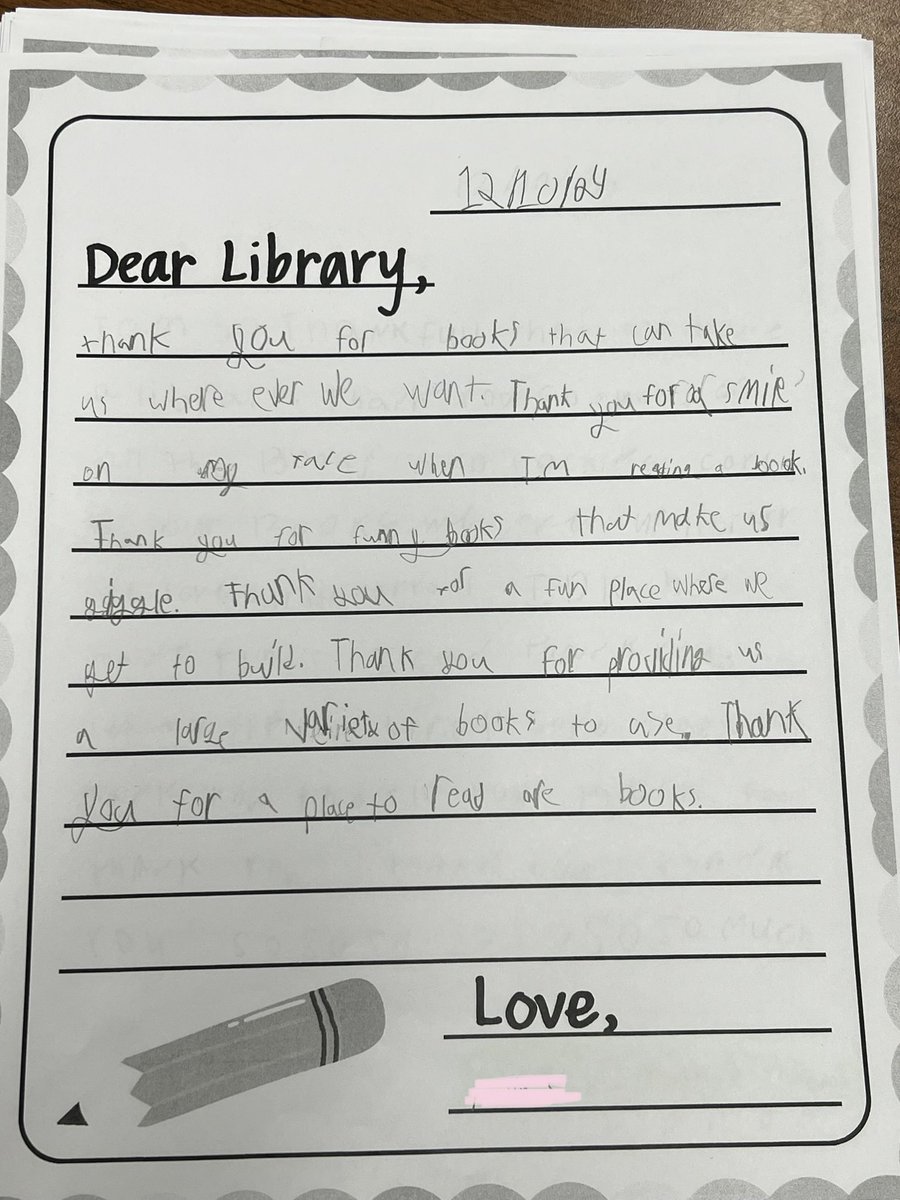 12/10/24
Dear Library,
thank you for books that can take
us where ever we want. Thank you for a smile
on my face when I'm reading a book.
Thank you for funny books that make us
giggle. Thank you for a fun place where we
get to build. Thank you for providing us
a large variety of books to use. Thank
you for a place to read are books.
Love,